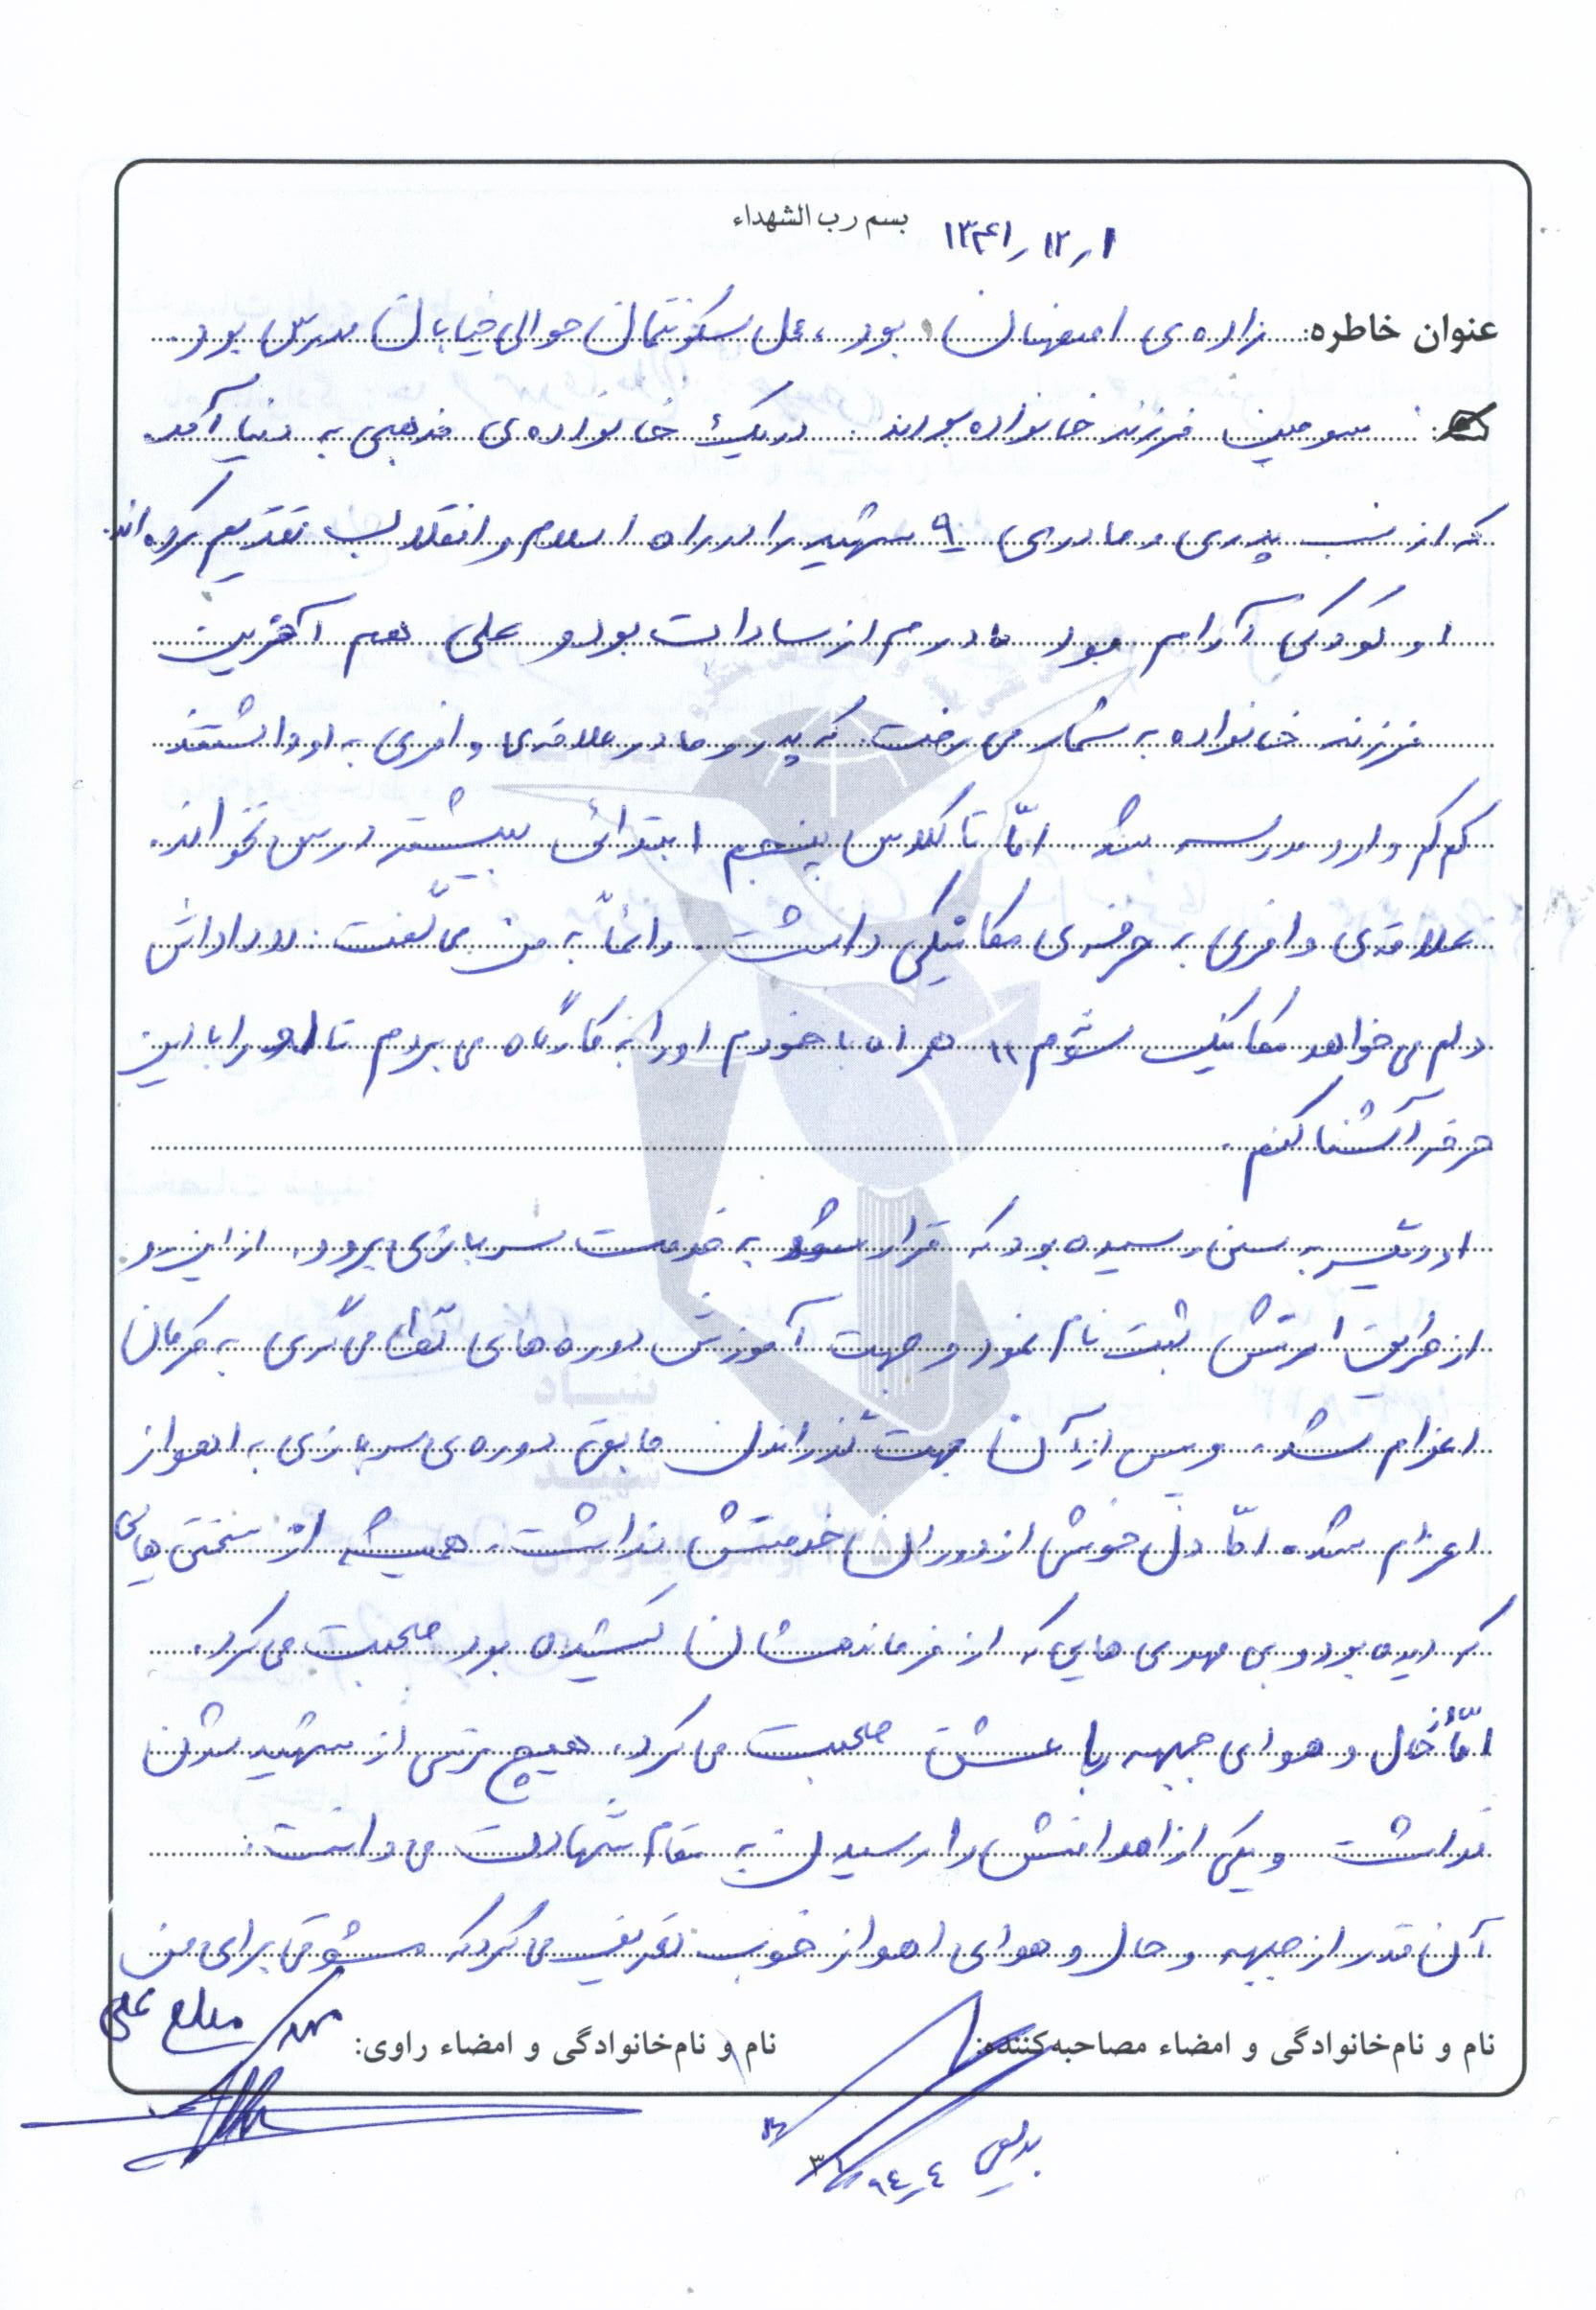 بسم رب الشهداء ۱۳۴۱٫۱۲٫۱
عنوان خاطره: زاده‌ی اصفهان بود، محل سکونتمان حوالی خیابان مدرس بود.
سومین فرزند خانواده بودند. در یک خانواده‌ی مذهبی به دنیا آمد
که از نسب پدری و مادری ۹ شهید را در راه اسلام و انقلاب تقدیم کرده‌اند.
او کودکی آرام بود مادرم از سادات بود و علی هم آخرین
فرزند خانواده به شمار می‌رفت. که پدر و مادر علاقه‌ی وافری به او داشتند
کم کم وارد مدرسه شد. امّا تا کلاس پنجم ابتدائی بیشتر درس نخواند.
علاقه‌ی وافری به حرفه‌ی مکانیکی داشت. دائماً به من می‌گفت: «داداش
دلم می‌خواهد مکانیک شوم» همراه با خودم او را به کارگاه می‌بردم تا او را با این
حرفه آشنا کنم.
او دیگر به سنی رسیده بود که قرار شد به خدمت سربازی برود، از این رو
از طریق ارتش ثبت نام نمود و جهت آموزش دوره‌های نظامی‌گری به کرمان
اعزام شد. و پس از آن جهت گذراندن مابقی دوره‌ی سربازی به اهواز
اعزام شد. امّا دل خوش از دوران خدمتش نداشت. همیشه از سختی‌هایی
که دیده بود و بی مهری‌هایی که از فرماندهشان کشیده بود صحبت می‌کرد.
امّا از حال و هوای جبهه با عشق صحبت می‌کرد، هیچ ترسی از شهید شدن
نداشت و یکی از اهدافش را رسیدن به مقام شهادت می‌دانست.
آن قدر از جبهه و حال و هوای اهواز خوب تعریف می‌کرد که شوقی برای من
نام و نام‌خانوادگی و امضاء مصاحبه‌کننده: نام و نام‌خانوادگی و امضاء راوی:
۳